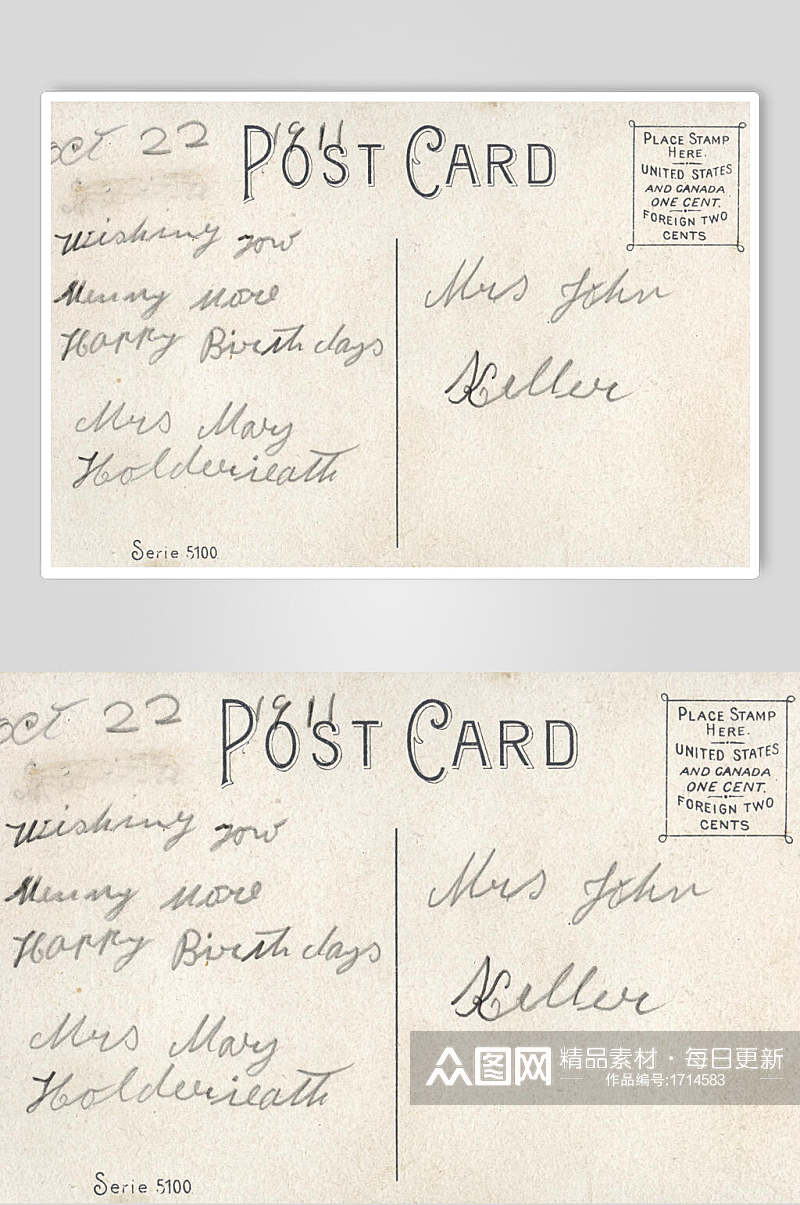 Oct 22 1911
POST CARD
PLACE STAMP
HERE.
UNITED STATES
AND CANADA
ONE CENT.
FOREIGN TWO
CENTS
Wishing you
Menny More
Happy Birth days
Mrs Mary
Mrs John
Keller
Serie 5100
Oct 22 1911
POST CARD
PLACE STAMP
HERE.
UNITED STATES
AND CANADA
ONE CENT.
FOREIGN TWO
CENTS
Wishing you
Menny More
Happy Birth days
Mrs Mary
Mrs John
Keller
Serie 5100
众图网
精品素材·每日更新
作品编号:1714583